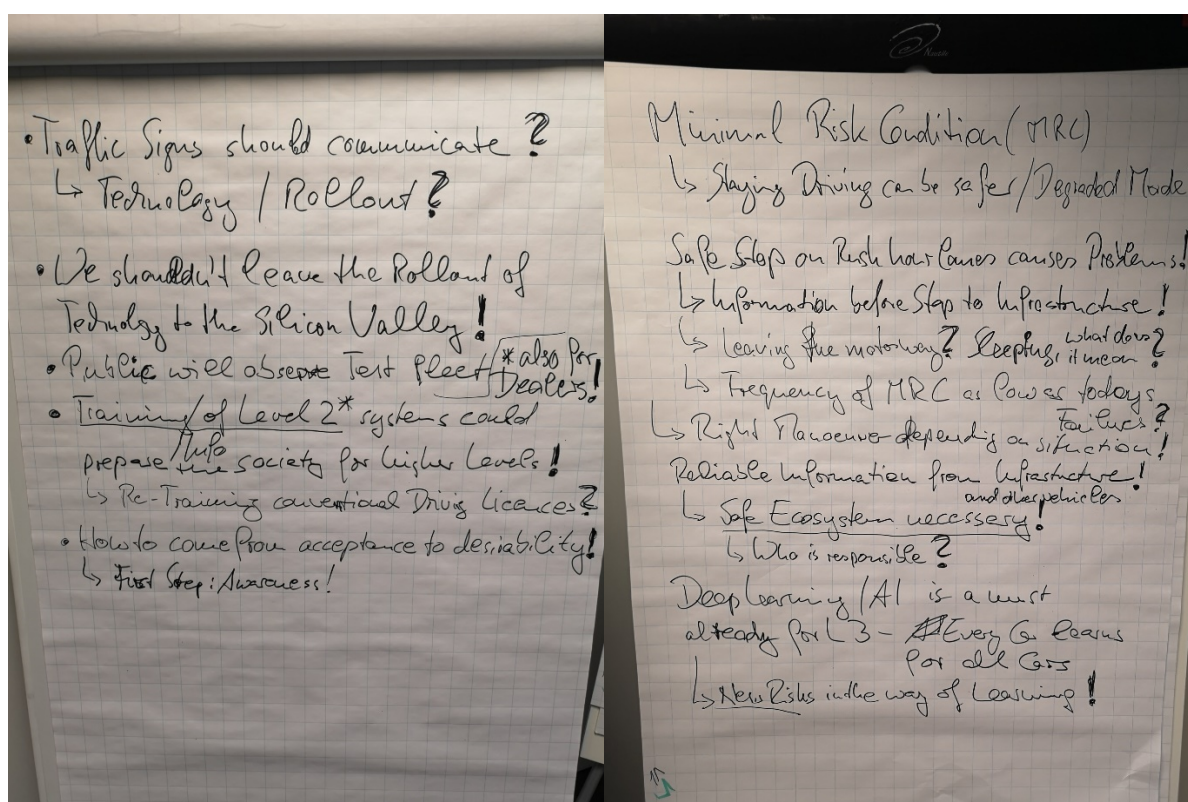 • Traffic Signs should communicate ?
↳ Technology / Rollout ?
• We shouldn't leave the Rollout of
Technology to the Silicon Valley !
• Public will observe Test fleet
* also for
Dealers !
• Training / of Level 2* systems could
Info
prepare the society for higher Levels !
↳ Re-Training conventional Driving Licences ?
• How to come from acceptance to desirability !
↳ First Step : Awareness !
Minimal Risk Condition (MRC)
↳ Staying Driving can be safer / Degraded Mode
Safe Stop on Rush hour Lanes causes Problems !
↳ Information before Stop to Infrastructure !
↳ Leaving the motorway ? Sleeping, what does it mean ?
↳ Frequency of MRC as low as todays
Failures ?
↳ Right Manoeuver depending on situation !
Reliable Information from Infrastructure !
and other vehicles
↳ Safe Ecosystem necessery !
↳ Who is responsible ?
Deep Learning / AI is a must
already for L3 - Every Car learns
for all Cars
↳ New Risks in the way of Learning !